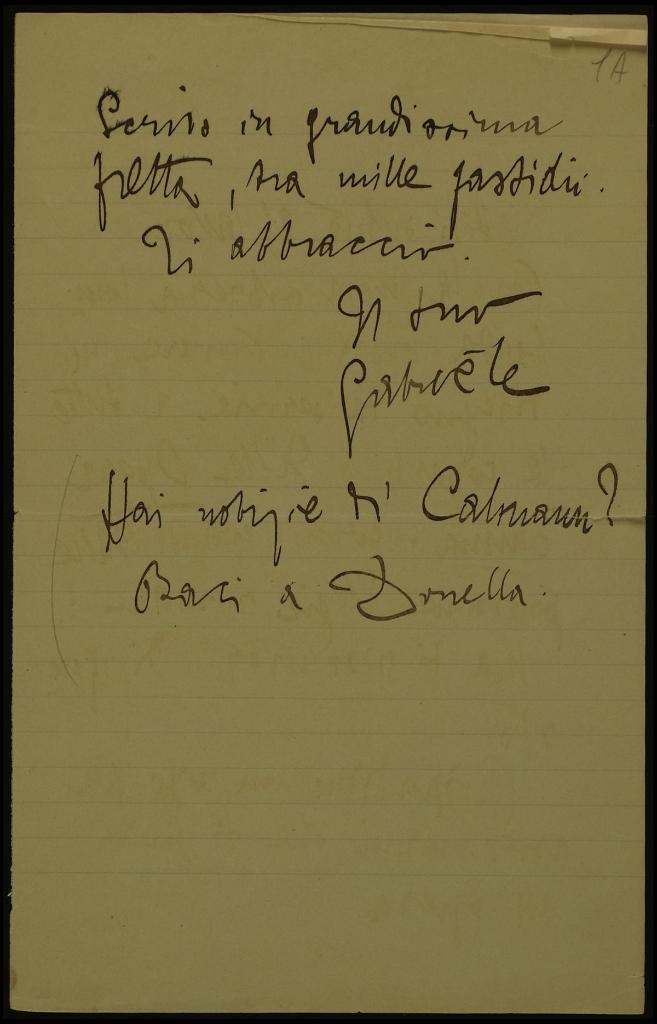 1A
Scrivo in grandissima
fretta, tra mille fastidii.
Ti abbraccio.
Il tuo
Gabriele
Hai notizie di Calmann?
Baci a Donella.